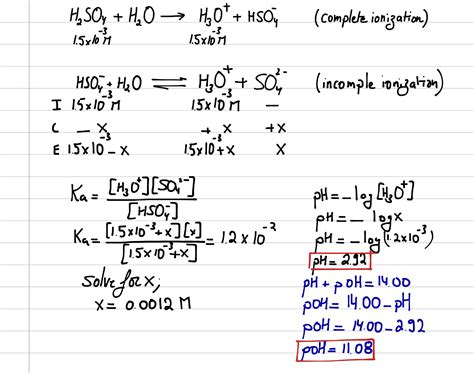 H₂SO₄ + H₂O → H₃O⁺ + HSO₄⁻ (complete ionization)
1.5x10⁻³ M 1.5x10⁻³ M
HSO₄⁻ + H₂O ⇌ H₃O⁺ + SO₄²⁻ (incomple ionization)
I 1.5x10⁻³ M 1.5x10⁻³ M —
C - x + x + x
E 1.5x10⁻³ - x 1.5x10⁻³ + x x
Ka = [H₃O⁺][SO₄²⁻] / [HSO₄⁻]
Ka = [1.5x10⁻³ + x][x] / [1.5x10⁻³ + x] = 1.2 x 10⁻²
Solve for x,
x = 0.0012 M
pH = - log [H₃O⁺]
pH = - log x
pH = - log (1.2x10⁻³)
pH = 2.92
pH + pOH = 14.00
pOH = 14.00 - pH
pOH = 14.00 - 2.92
pOH = 11.08